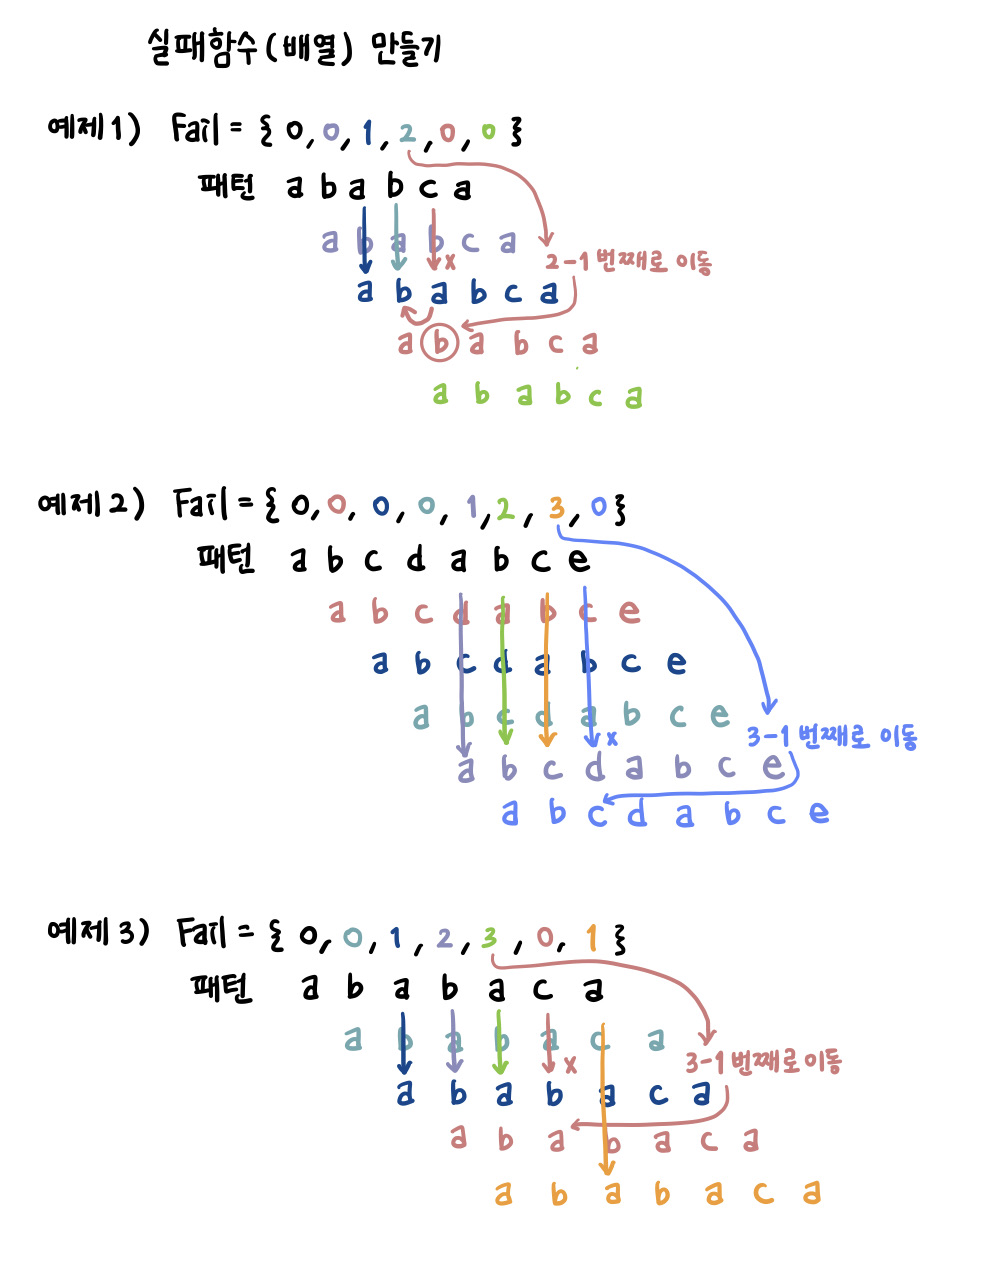 실패함수(배열) 만들기
예제1) Fail = { 0, 0, 1, 2, 0, 0 }
패턴 a b a b c a
a b a b c a
x
2-1 번째로 이동
a b a b c a
a b a b c a
a b a b c a
예제2) Fail = { 0, 0, 0, 0, 1, 2, 3, 0 }
패턴 a b c d a b c e
a b c d a b c e
a b c d a b c e
a b c d a b c e
x
3-1 번째로 이동
a b c d a b c e
a b c d a b c e
예제3) Fail = { 0, 0, 1, 2, 3, 0, 1 }
패턴 a b a b a c a
a b a b a c a
x
3-1 번째로 이동
a b a b a c a
a b a b a c a
a b a b a c a